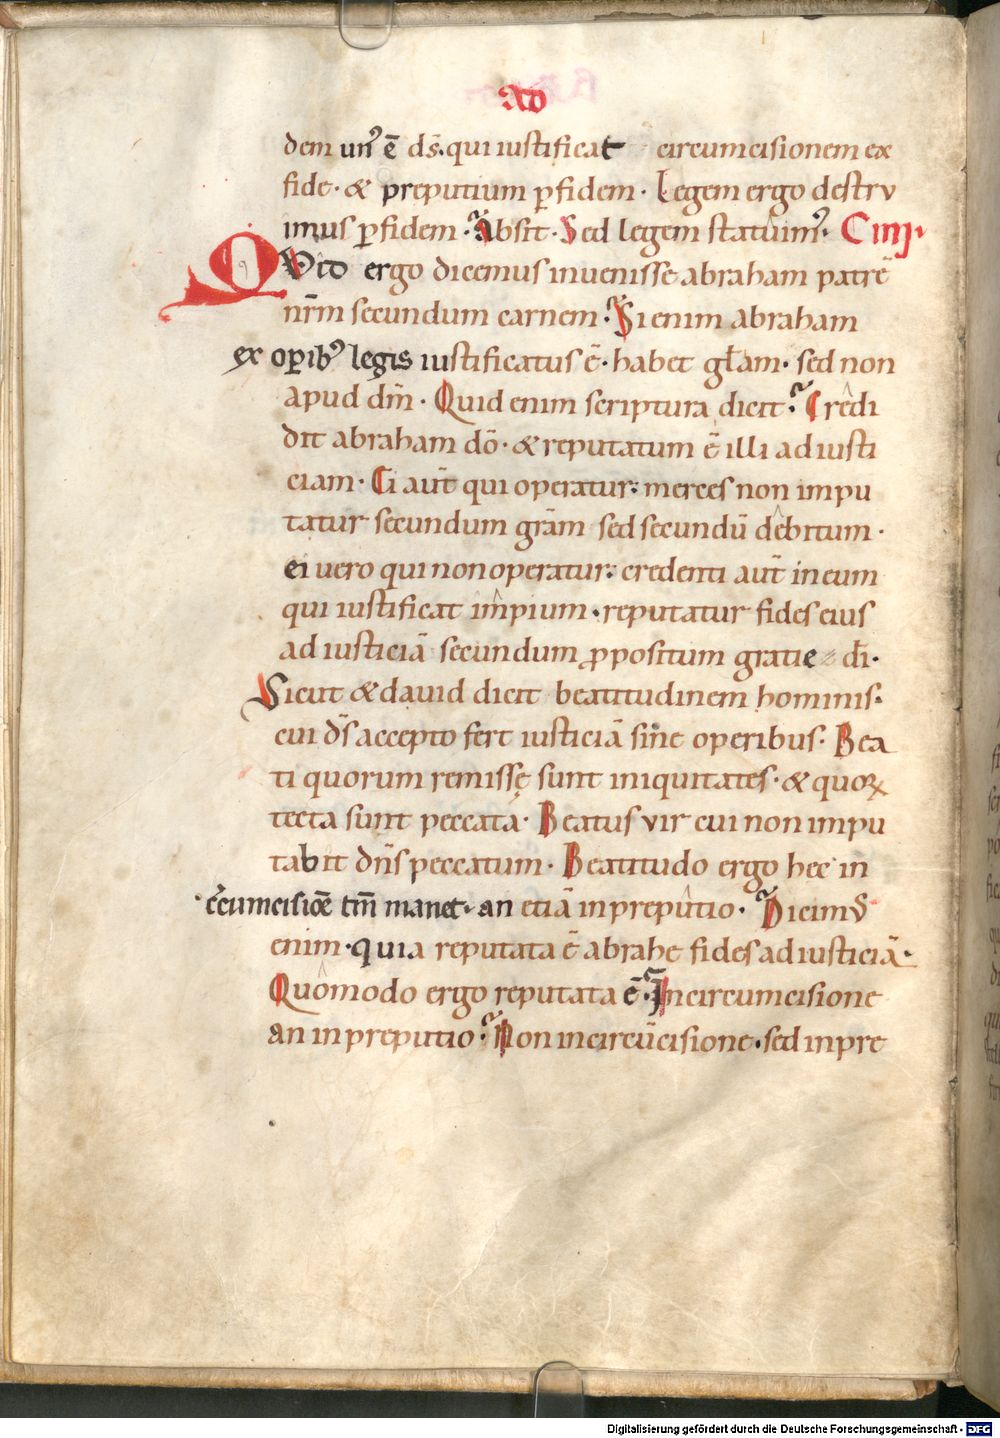 AD
dem un᾽ ē ds̄. qui iustificat circumcisionem ex
fide. & preputium ꝑ fidem. Legem ergo destrv
imus ꝑ fidem. Absit. Sed legem statuim᾽. C IIIJ.
QVID ergo dicemus invenisse abraham patrē
nr̄m secundum carnem. Si enim abraham
ex oꝑib᾽ legis iustificatus ē. habet gl̄am. sed non
apud dm̄. Quid enim scriptura dicit. Credi
dit abraham dō. & reputatum ē illi ad iusti
ciam. Ei aut̄ qui operatur: merces non impu
tatur secundum grām sed secundū debitum.
ei vero qui non operatur: credenti aut̄ in eum
qui iustificat impium. reputatur fides eius
ad iusticiā secundum ꝓpositum gratie di̅.
Sicut & david dicit beatitudinem hominis.
cui ds̄ accepto fert iusticiā sine operibus. Bea
ti quorum remissę sunt iniquitates. & quoꝝ
tecta sunt peccata. Beatus vir cui non impu
tabit dn̄s peccatum. Beatitudo ergo hec in
c̄cumcisiōe tm̄ manet. an etiā in preputio. Dicim᾽
enim. quia reputata ē abrahe fides ad iusticiā.
Quomodo ergo reputata ē. In circumcisione
an in preputio. Non in circūcisione. sed in pre
Digitalisierung gefördert durch die Deutsche Forschungsgemeinschaft - DFG